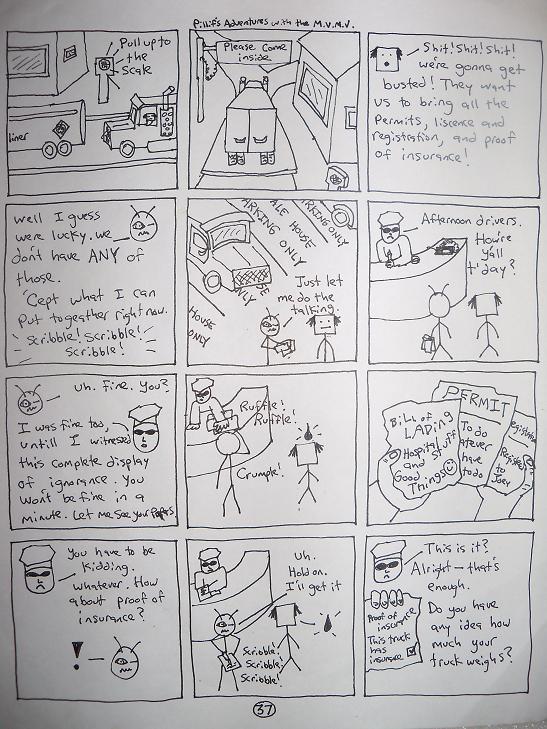 Pillif's Adventures with the M.V.M.V.
Pull up to
the
Scale
liner
Please Come
inside
Shit! Shit! Shit!
we're gonna get
busted! They want
us to bring all the
Permits, liscence and
registration, and proof
of insurance!
Well I guess
were lucky. we
don't have ANY of
those.
'Cept what I can
put togeather right now.
Scribble! Scribble!
Scribble!
ARKING ONLY
ALE HOUSE
ARKING ONLY
HOUSE
ONLY
Just let
me do the
talking.
Afternoon drivers.
How're
y'all
t'day?
Uh. Fine. You?
I was fine too,
untill I witnessed
this complete display
of ignorance. you
won't be fine in a
minute. Let me see your Papers
Ruffle!
Ruffle!
Crumple!
Bill of
LADing
Hospital stuff
and
Good
Things
PERMIT
To do
atever
have
to do
Registration
Registered
to
Joey
You have to be
kidding.
whatever. How
about proof of
insurance?
!
Uh.
Hold on.
I'll get it
Scribble!
Scribble!
Scribble!
This is it?
Alright - that's
enough.
Do you have
any idea how
much your
truck weighs?
Proof of
insurance
This truck
has
insurance
37